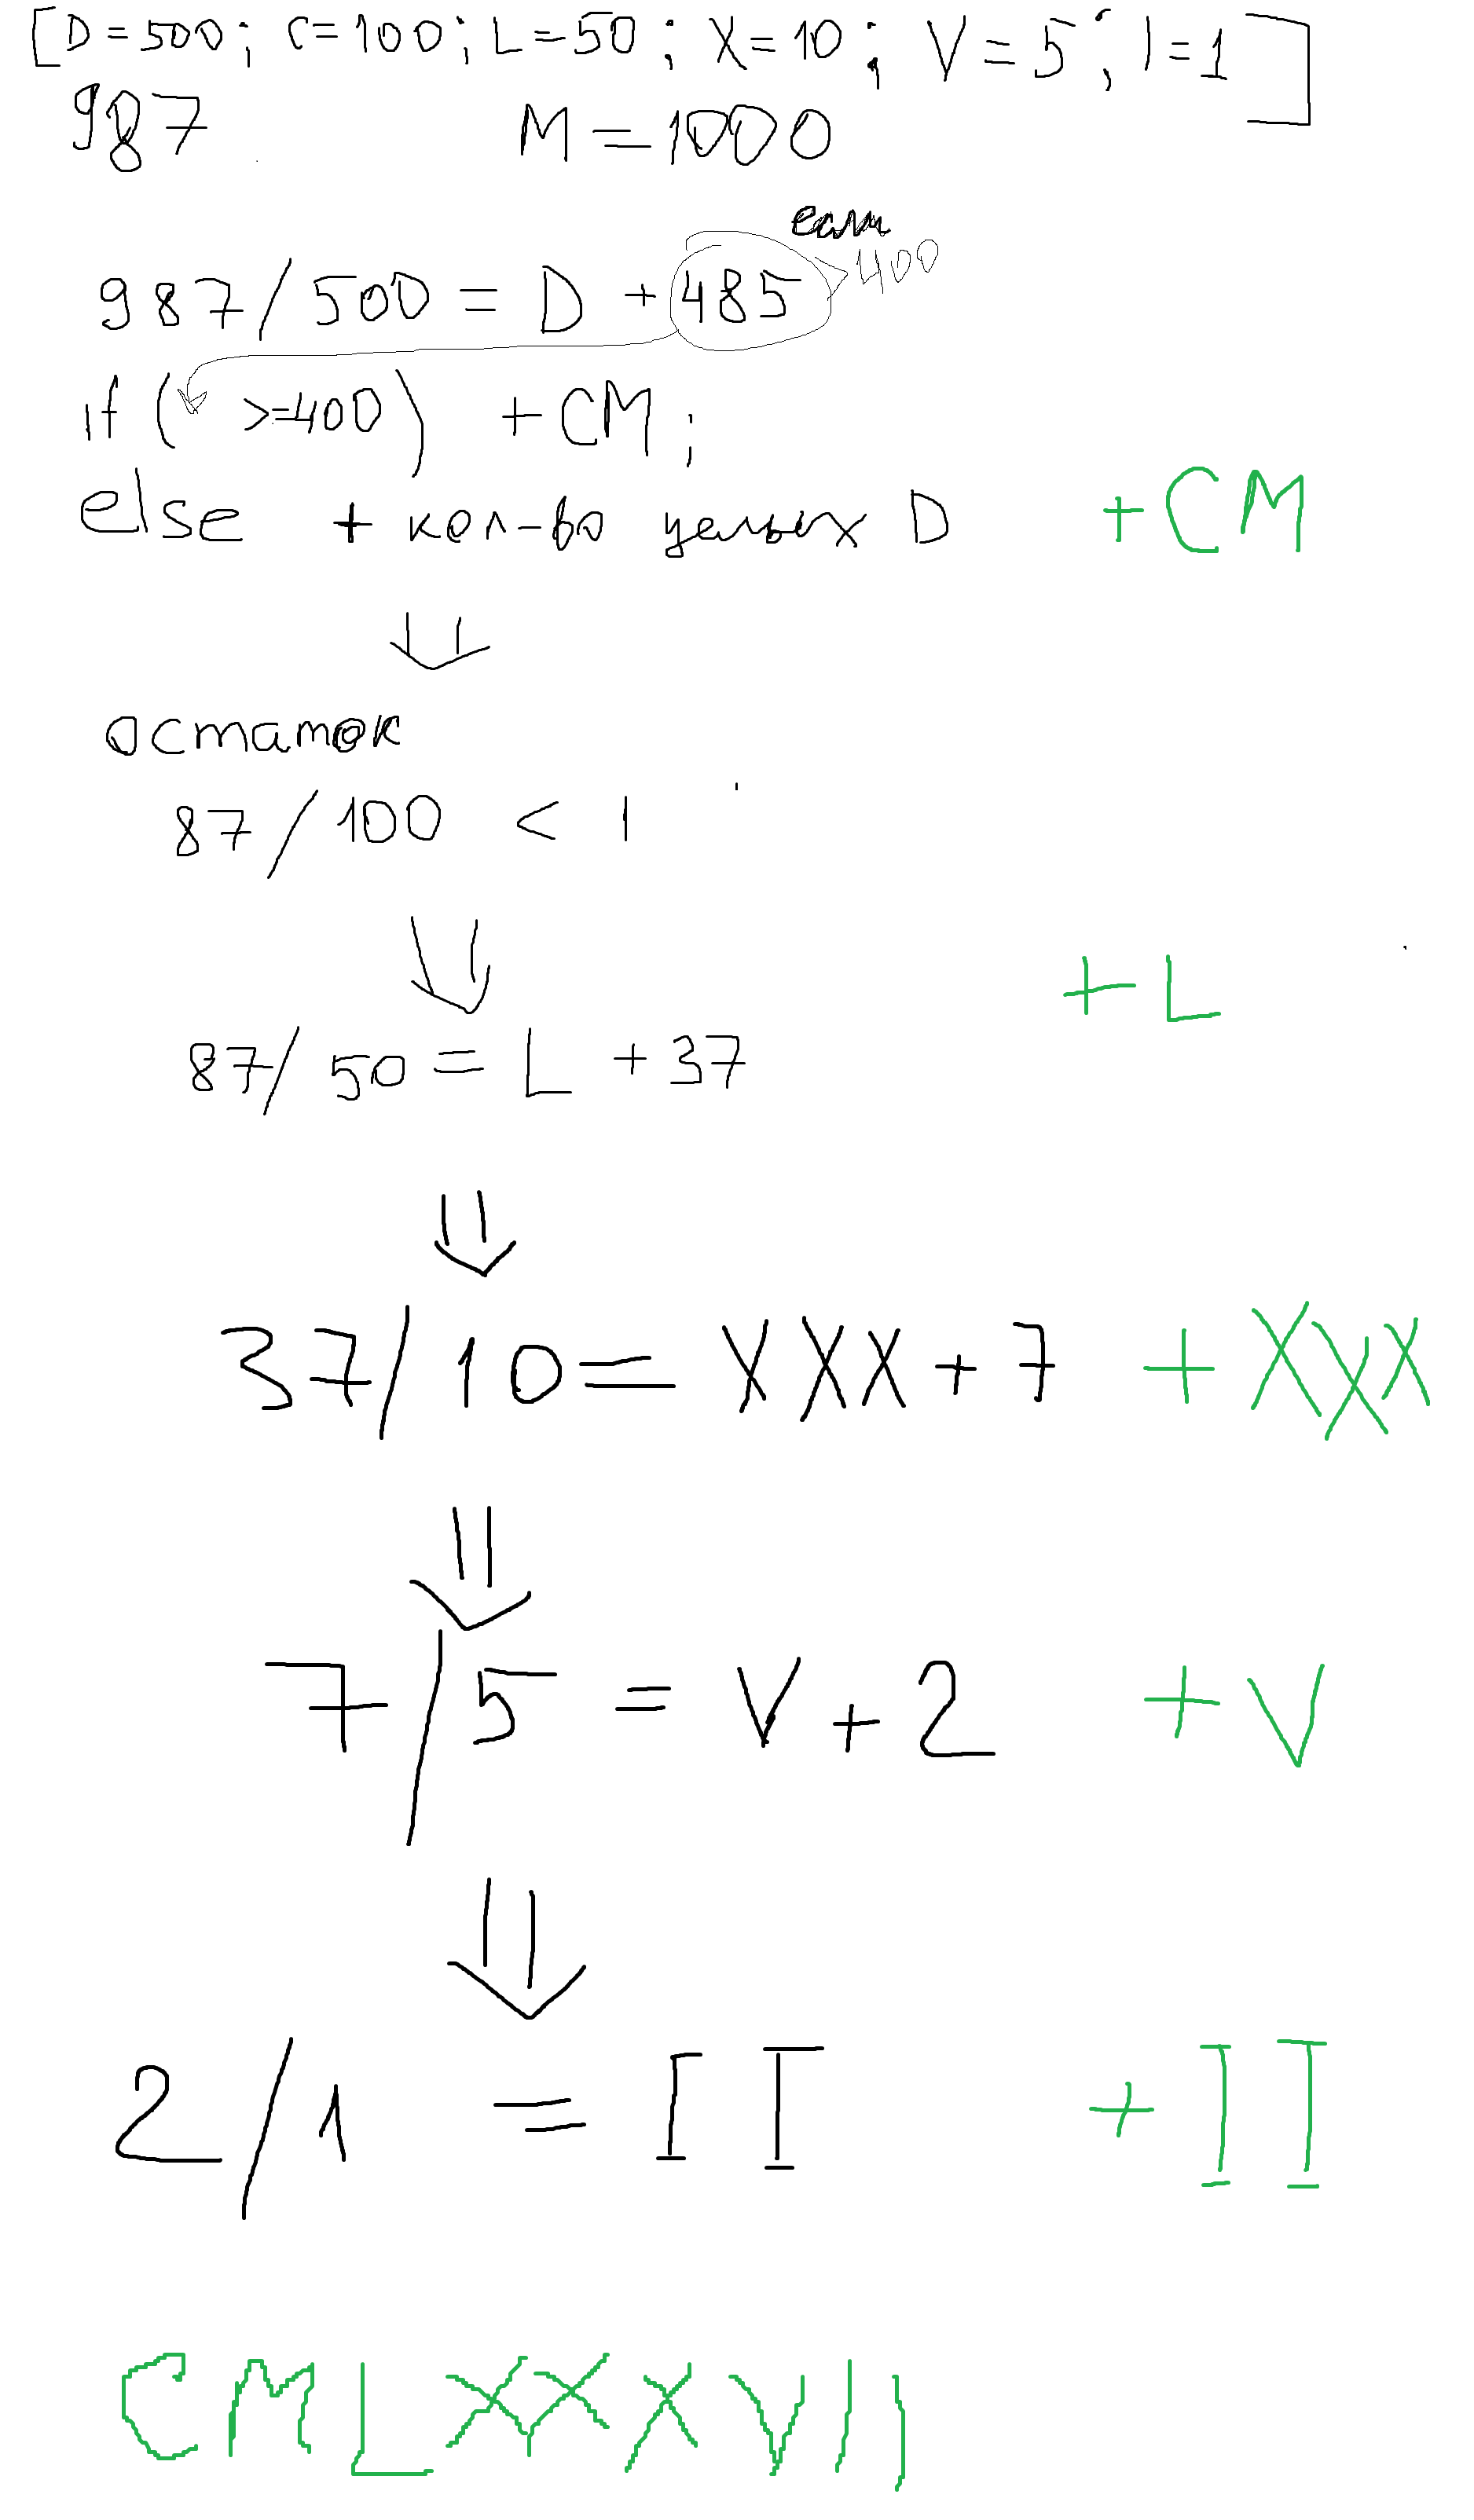 [D=500; C=100; L=50; X=10; V=5; I=1]
987 M=1000
если
987/500 = D + 485 > 400
if ( >=400) +CM;
else + кол-во целых D +CM
остаток
87/100 < 1
+L
87/50 = L + 37
37/10 = XXX + 7 + XXX
7/5 = V + 2 + V
2/1 = II + II
CMLXXXVII